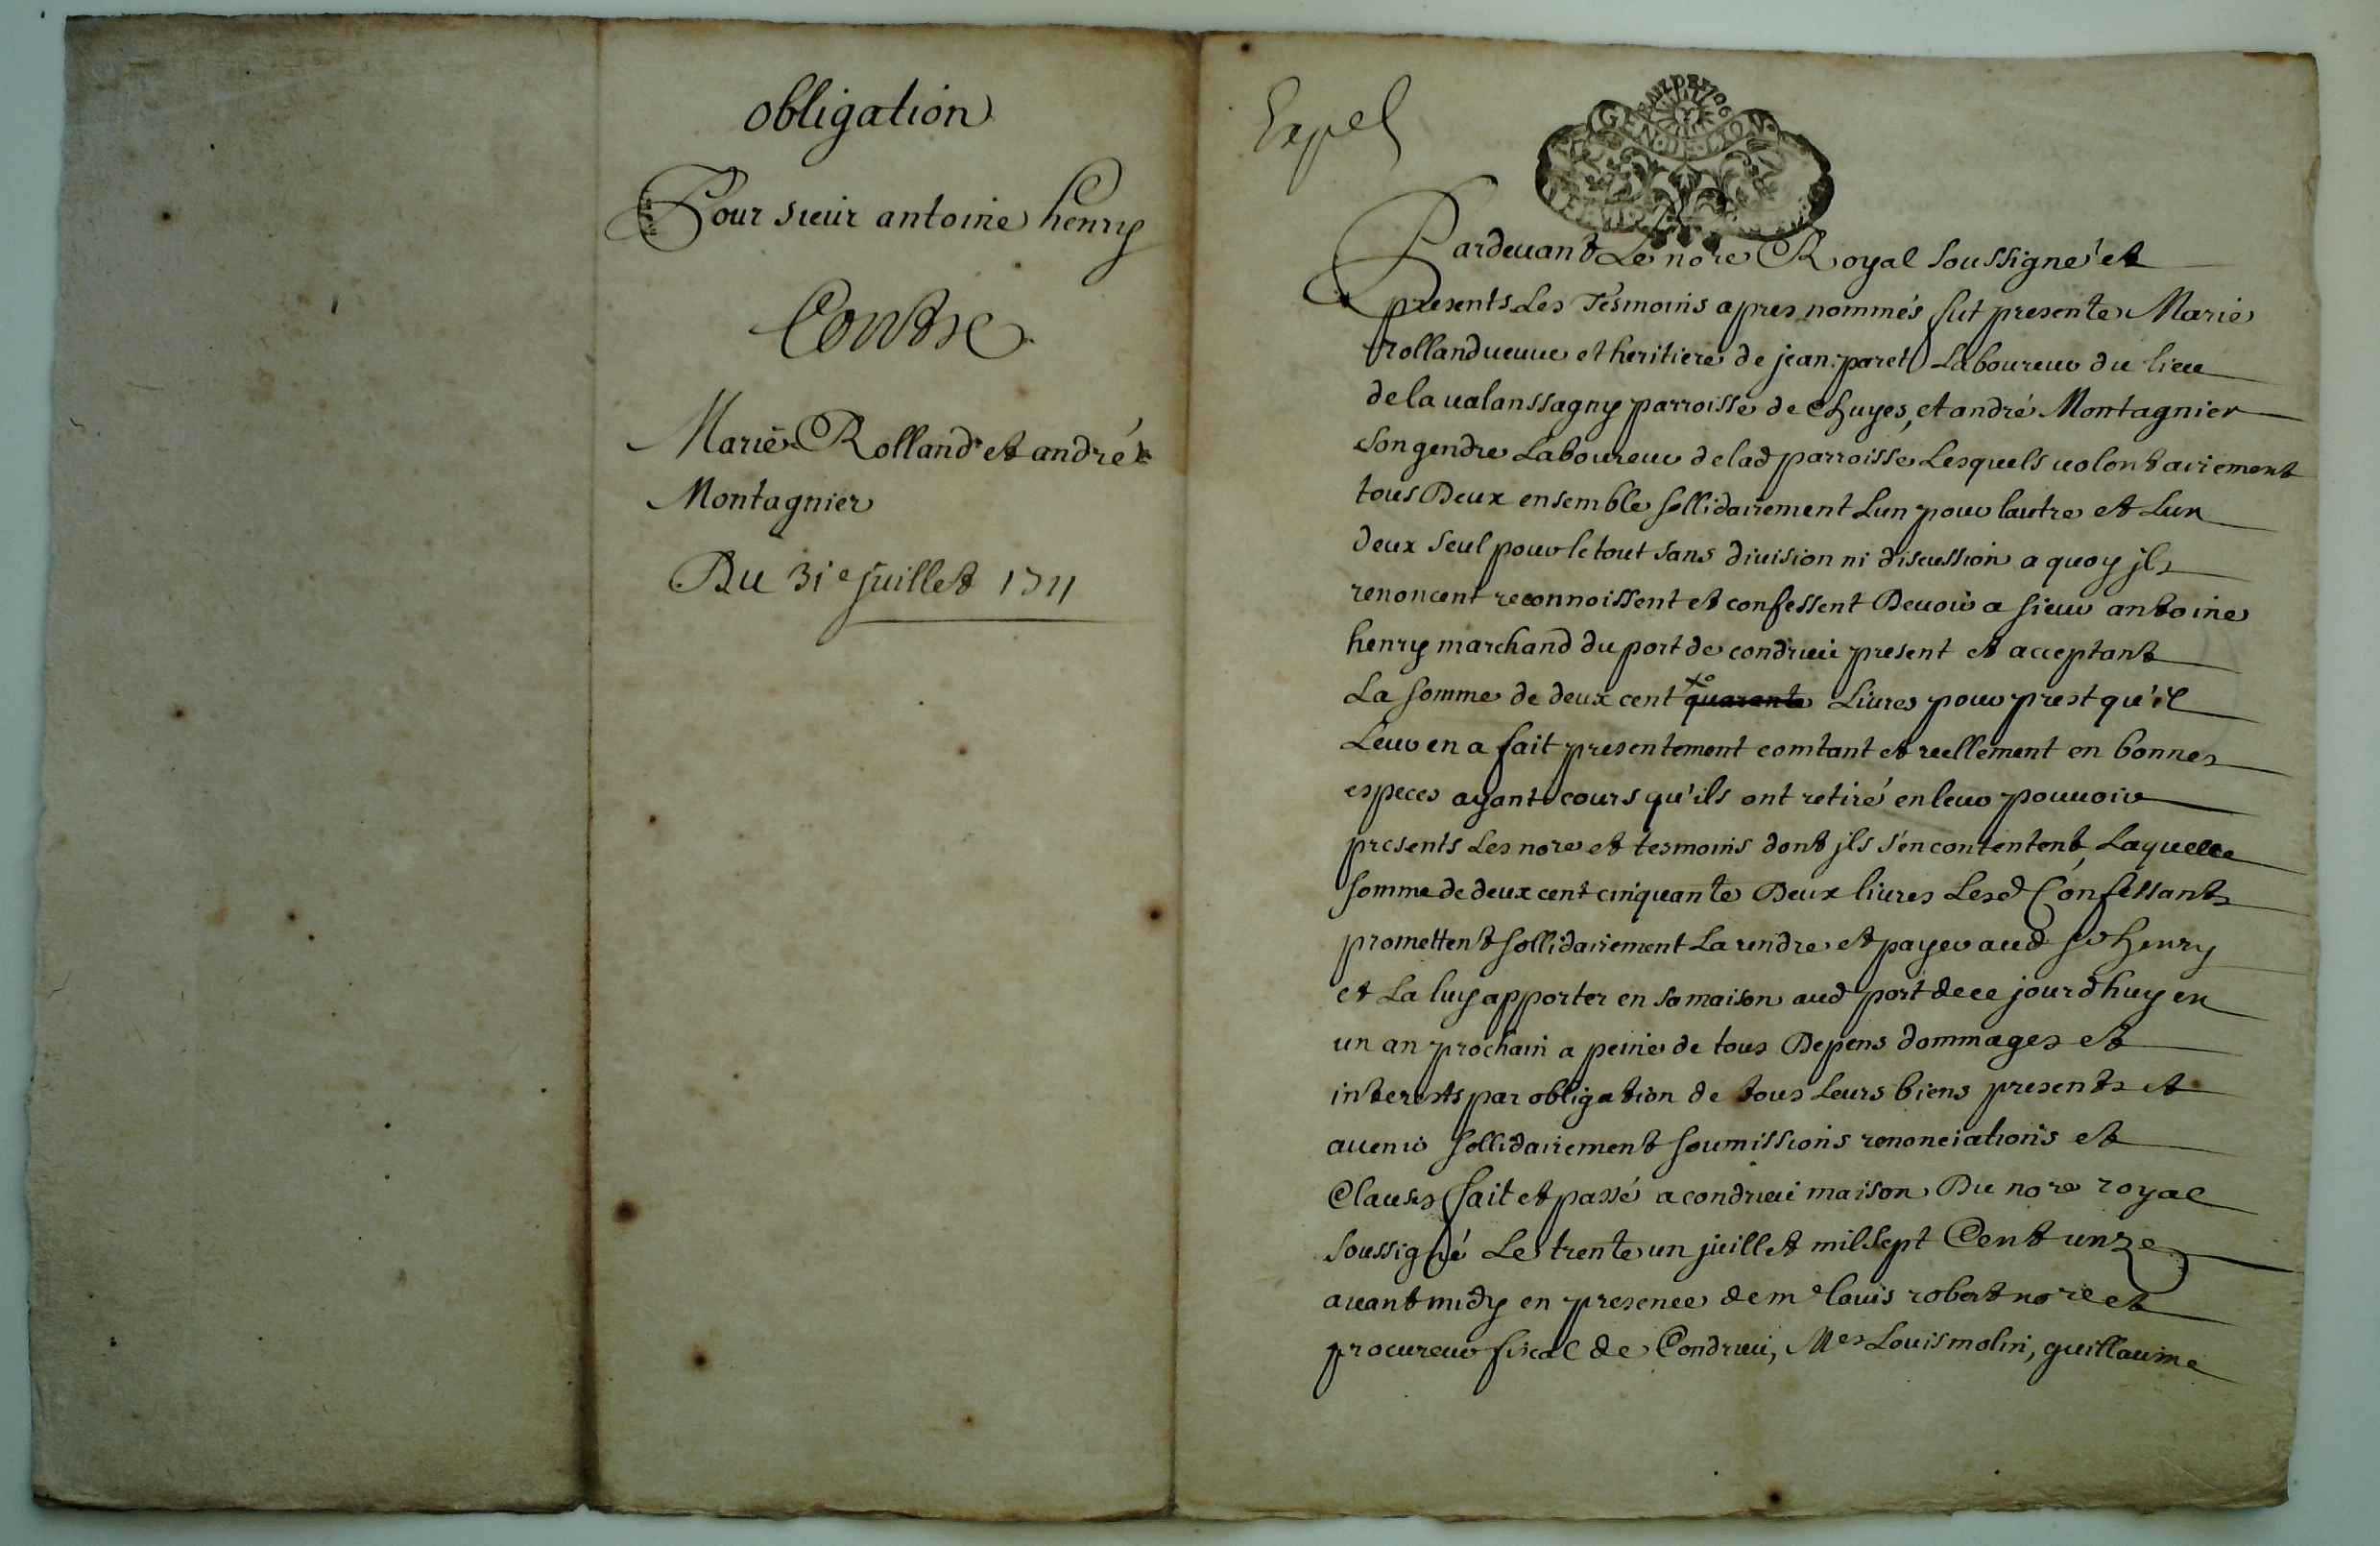 obligation
Pour sieur antoine henry
Contre
Marie Rolland et andré
Montagnier
Du 31e juillet 1711
Expel
GEN DE LION
Pardevant Le nore Royal soussigné et
presents Les Tesmoins apres nommés fut presente Marie
rolland veuve et heritiere de jean paret Laboureur du lieu
de la valanssagny parroisse de Chuyes, et andré Montagnier
son gendre Laboureur de lad parroisse Lesquels volontairement
tous Deux ensemble sollidairement Lun pour lautre et Lun
deux seul pour le tout sans division ni discussion a quoy jls
renoncent reconnoissent et confessent Devoir a sieur antoine
henry marchand du port de condrieu present et acceptant
La somme de deux cent quarante Livres pour prest qu'il
Leur en a fait presentement comtant et reellement en bonnes
especes ayant cours qu'ils ont retiré en leur pouvoir
presents Les nore et tesmoins dont jls s'en contentent, Laquelle
somme de deux cent cinquante Deux livres Lesd Confessants
promettent sollidairement La rendre et payer aud sr henry
et La luy apporter en sa maison aud port de ce jourdhuy en
un an prochain a peine de tous Depens dommages et
interests par obligation de tous Leurs biens presents et
avenir sollidairement soumissions renonciations et
Clauses fait et passé a condrieu maison Du nore royal
soussigné Le trente un juillet mil sept Cent unze
avant midy en presence de me louis robert nore et
procureur fiscal de Condrieu, Mes Louis molin, guillaume